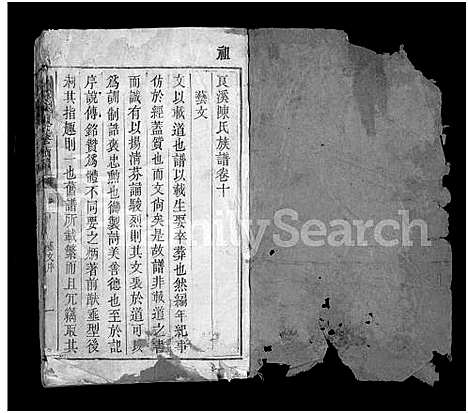 祖
良溪陳氏族譜卷十
藝文
文以載道也譜以載生娶卒葬也然編年紀事
仿於經蓋質也而文尚矣是故譜非載道之書
而識有以揚清芬誦駿烈則其文衷於道可以
為訓制誥褒忠勲也御製詩美善德也至於記
序說傳銘贊為體不同要之炳著前猷垂型後
嗣其指趣則一也舊譜所載蘩而且冗竊取其
藝文序
FamilySearch